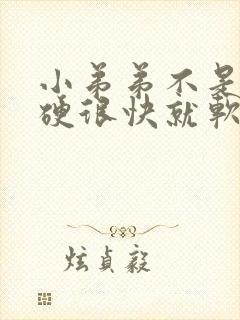 小弟弟不是
硬很快就軟
炫貞毅